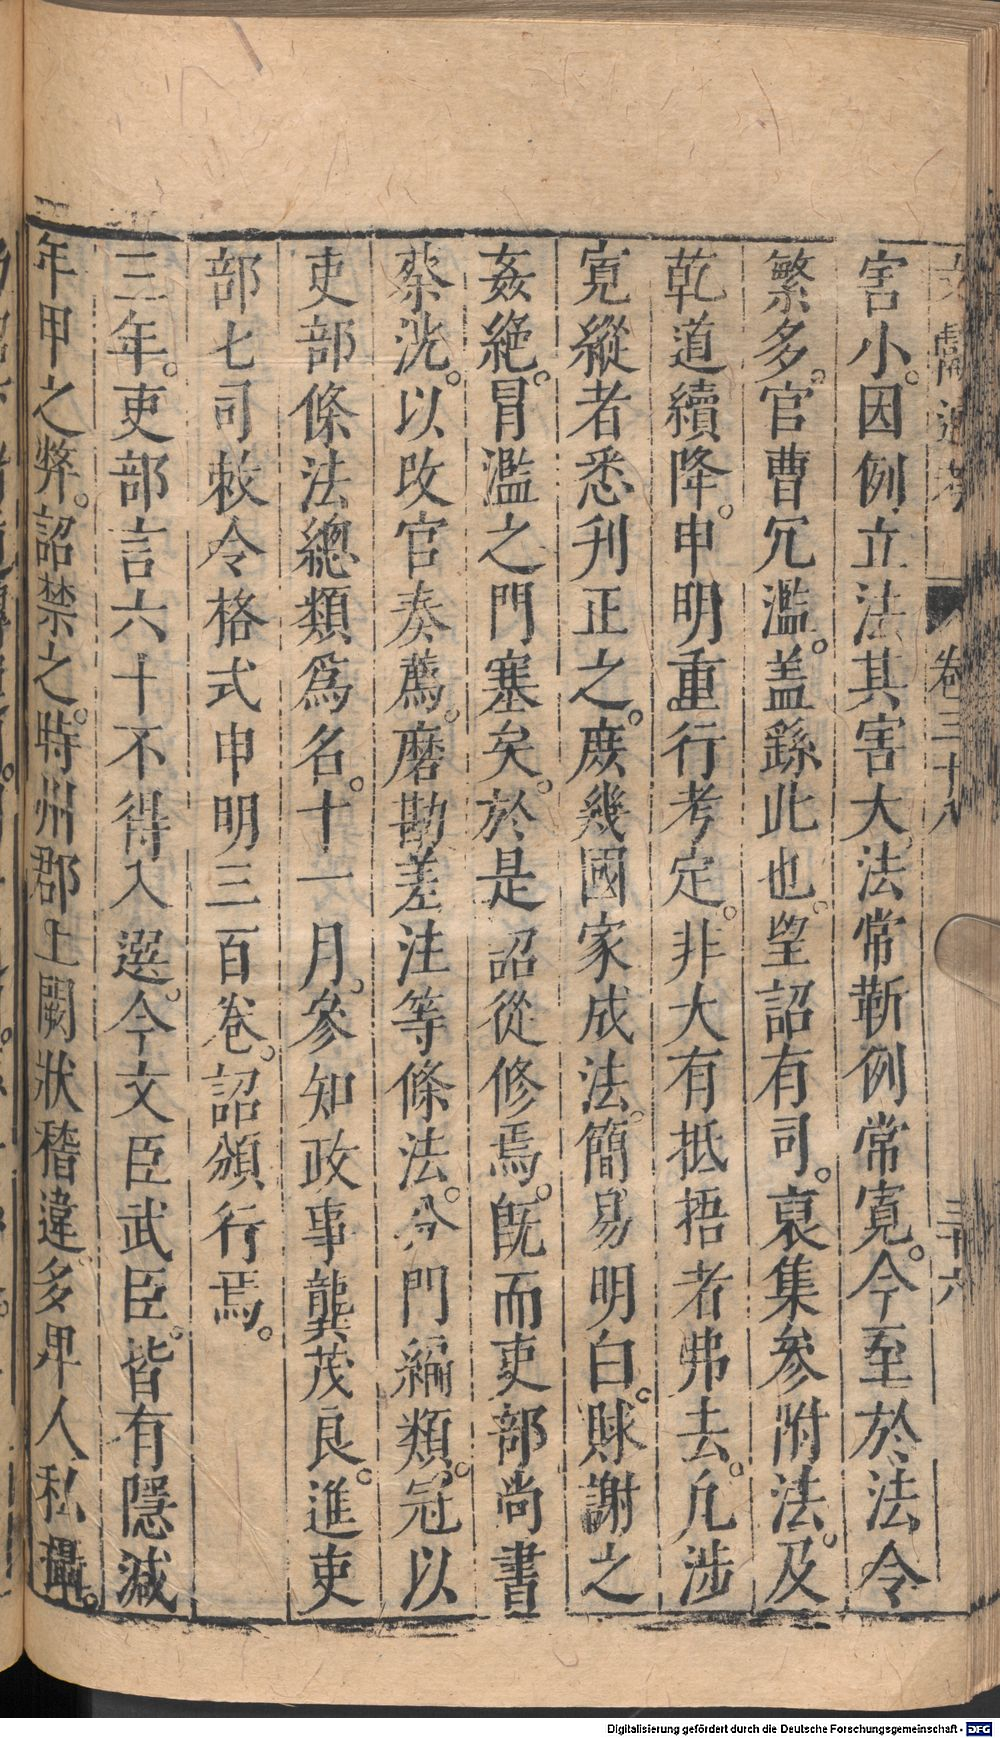 文獻通考 卷三十八 三十六
害小。因例立法其害大。法常靳例常寬。今至於法令
繁多。官曹冗濫。蓋繇此也。望詔有司。裒集參附法。及
乾道續降。申明重行考定。非大有抵捂者弗去。凡涉
寬縱者悉刋正之。庻幾國家成法。簡易明白。賕謝之
姦絶。冒濫之門塞矣。於是詔從修焉。旣而吏部尚書
蔡洸。以改官奏薦。磨勘差注等條法。分門編類。冠以
吏部條法總類爲名。十一月。參知政事龔茂良。進吏
部七司敕令格式申明三百卷。詔頒行焉。
三年。吏部言六十不得入選。今文臣武臣。皆有隱減
年甲之弊。詔禁之。時州郡上闕狀稽違。多畀人私攝。
Digitalisierung gefördert durch die Deutsche Forschungsgemeinschaft - DFG